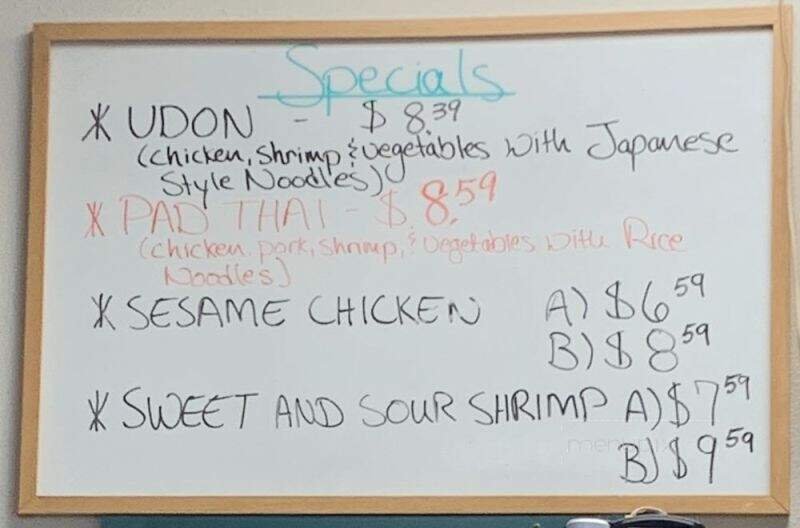 Specials
* UDON - $ 8.39
(chicken, shrimp & vegetables with Japanese
Style Noodles)
* PAD THAI - $ 8.59
(chicken, pork, shrimp, & vegetables with Rice
Noodles)
* SESAME CHICKEN A) $6 59
B) $ 8 59
* SWEET AND SOUR SHRIMP A) $7 59
B) $9 59